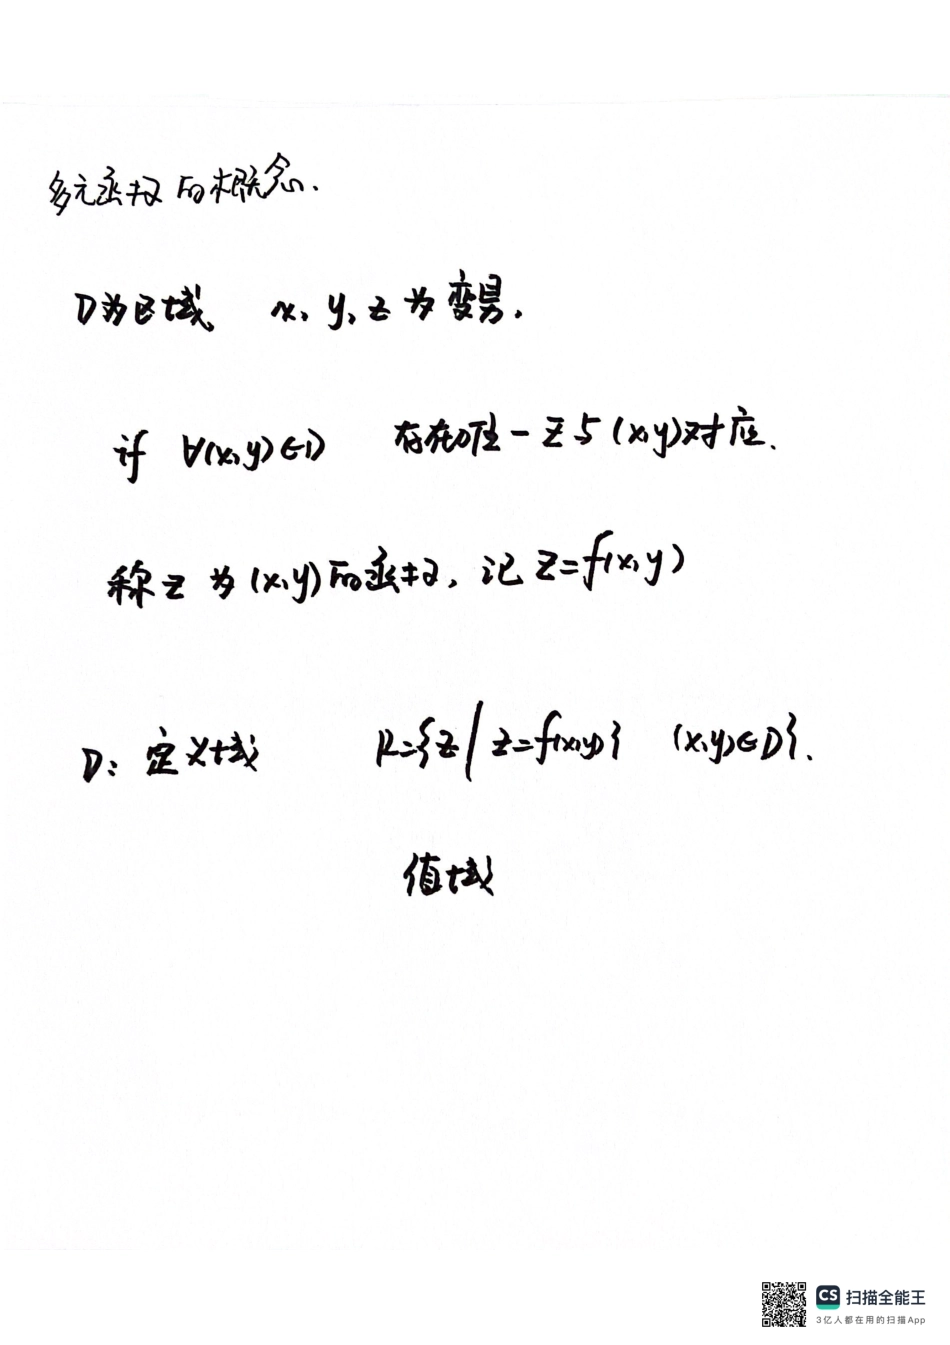 多元函数的概念.
D为区域, x, y, z 为变量.
if ∀(x,y)∈D 存在唯一 z 与 (x,y)对应.
称 z 为 (x,y)的函数, 记 z=f(x,y)
D: 定义域 R={z | z=f(x,y)} (x,y)∈D}.
值域
CS 扫描全能王
3亿人都在用的扫描App